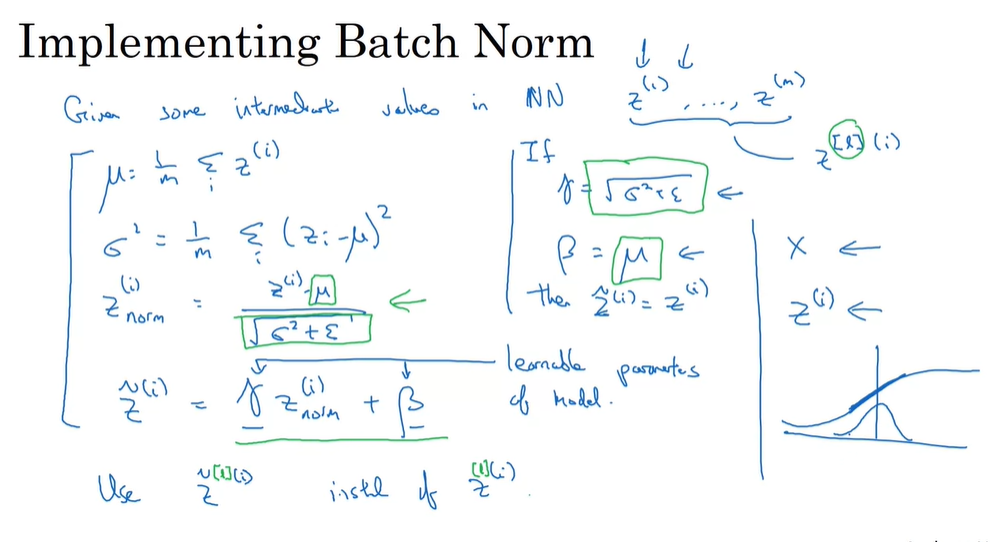 Implementing Batch Norm
Given some intermediate values in NN z^(1), ...., z^(m)
z^[l](i)
μ = 1/m Σ_i z^(i)
σ² = 1/m Σ_i (z_i - μ)²
z_norm^(i) = (z^(i) - μ) / √(σ² + ε)
z̃^(i) = γ z_norm^(i) + β
learnable parameters
of model.
If
γ = √(σ² + ε)
β = μ
then z̃^(i) = z^(i)
X
z^(i)
Use z̃^[l](i) instead of z^[l](i).